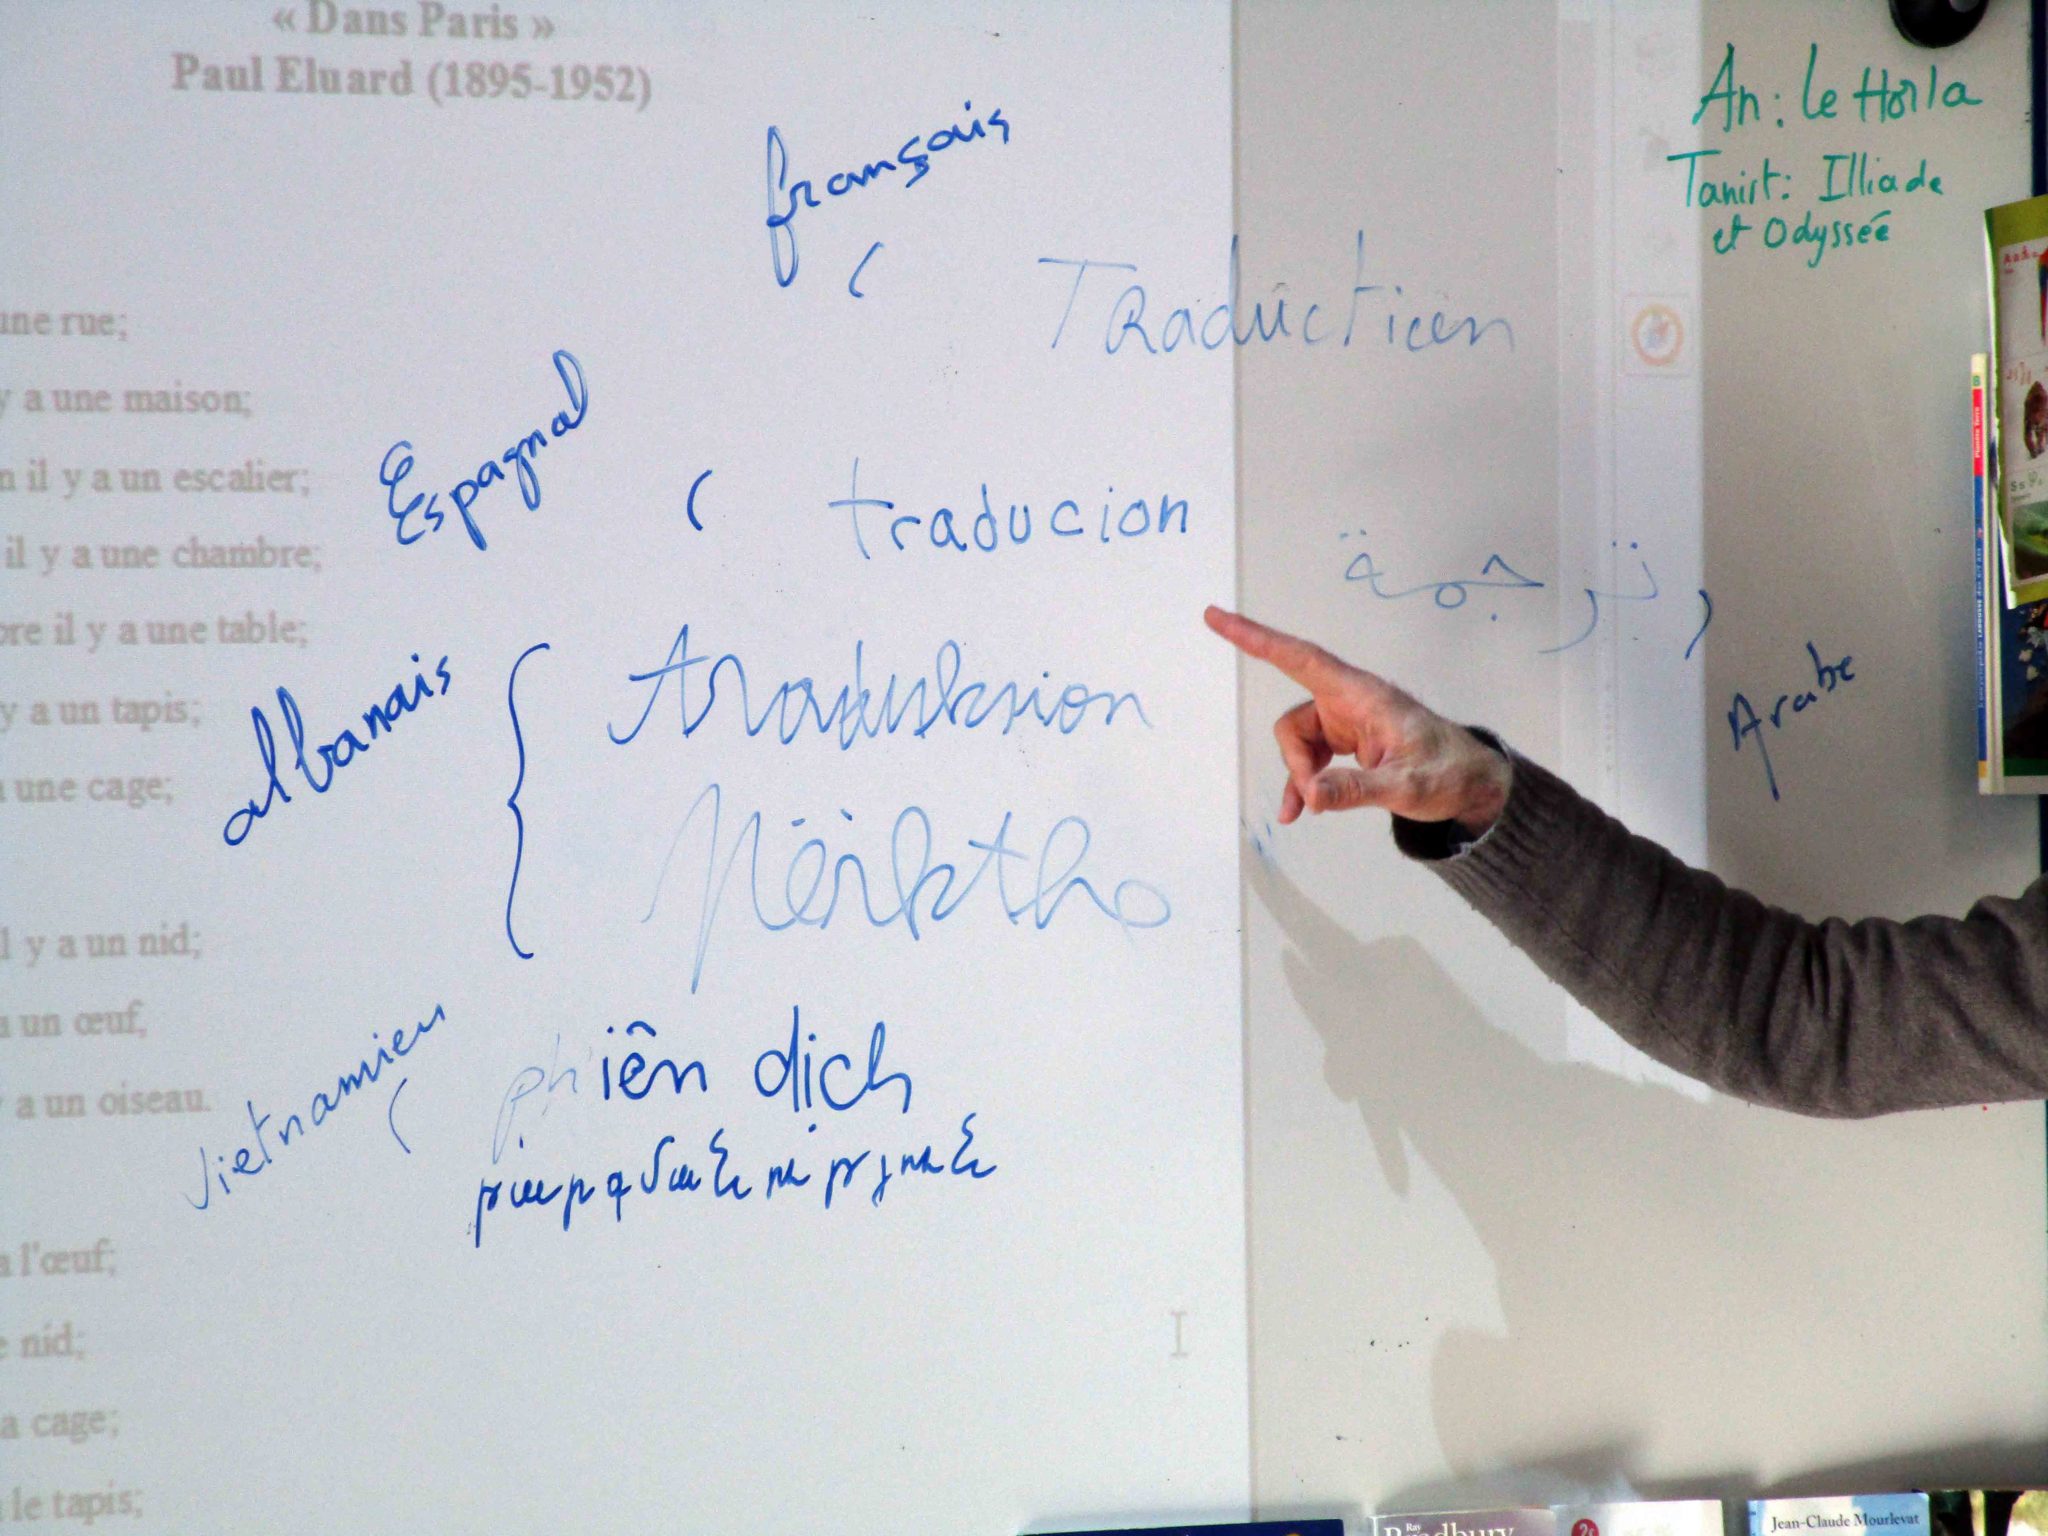 « Dans Paris »
Paul Eluard (1895-1952)
une rue;
y a une maison;
il y a un escalier;
il y a une chambre;
il y a une table;
y a un tapis;
une cage;
y a un nid;
un œuf,
y a un oiseau.
l'œuf;
nid;
cage;
le tapis;
français
Traduction
Espagnol
traducion
ترجمة
Arabe
albanais
traduksion
Përkth
Vietnamien
phiên dịch
An: Le Horla
Tanist: Illiade
et Odyssée
Ray
Bradbury
Jean-Claude Mourlevat